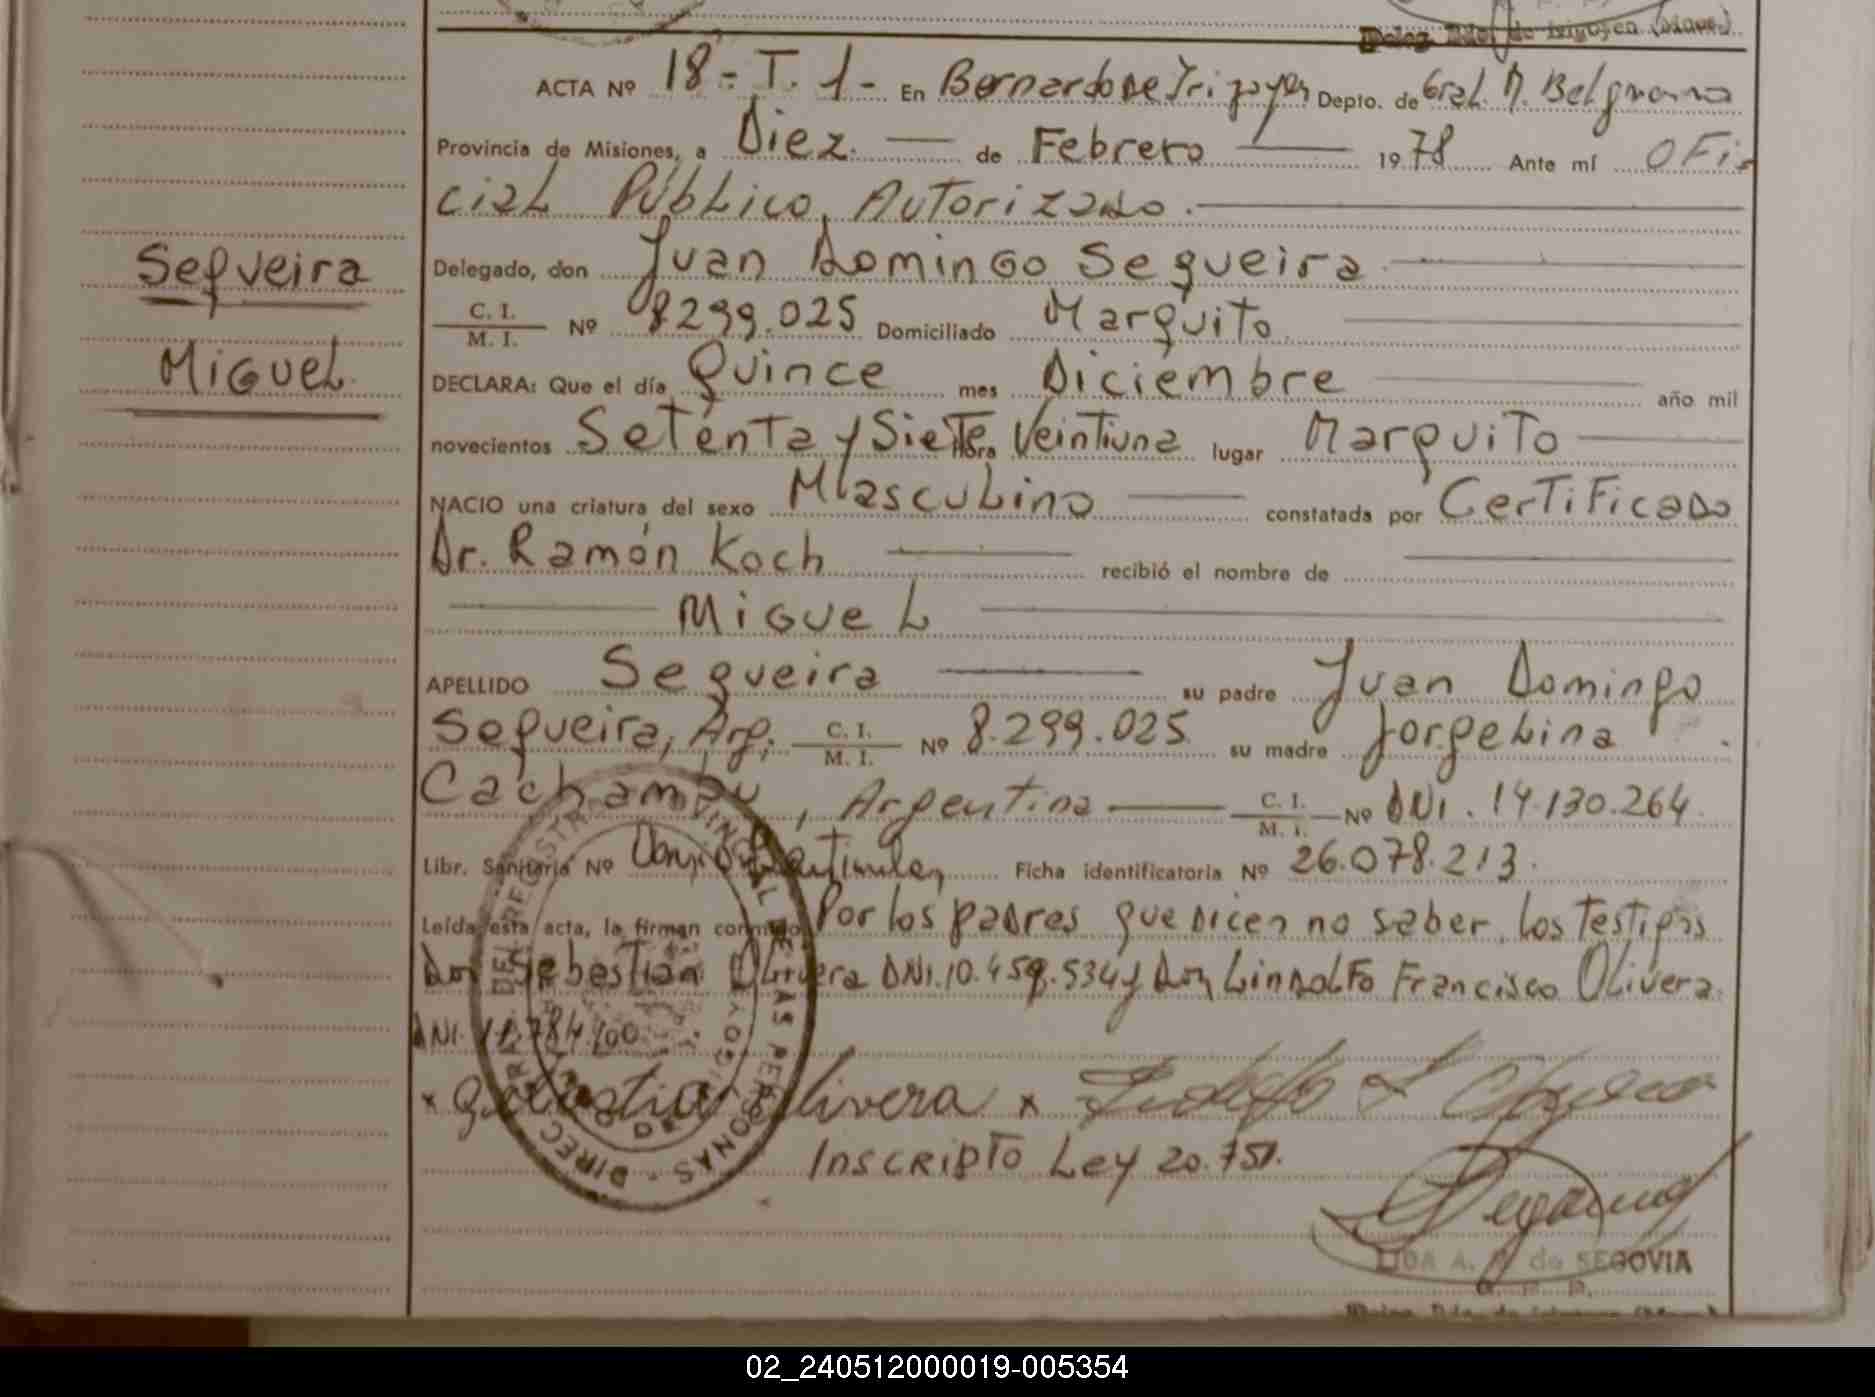 ACTA Nº 18 - T. 1 - En Bernardo de Irigoyen Depto. de Gral. M. Belgrano
Provincia de Misiones, a Diez de Febrero 1978 Ante mí Ofi
cial Público Autorizado.
Delegado, don Juan Domingo Segueira
C. I.
M. I. Nº 8299.025 Domiciliado Marquito
Segueira
Miguel
DECLARA: Que el día Quince mes Diciembre año mil
novecientos Setenta y Siete Hora Veintiuna lugar Marquito
NACIO una criatura del sexo Masculino constatada por Certificado
Dr. Ramón Koch recibió el nombre de
Miguel
APELLIDO Segueira su padre Juan Domingo
Segueira, Arg. C. I. M. I. Nº 8.299.025 su madre Jorgelina
Cachambu, Argentina C. I. M. I. Nº DNI. 14.130.264
Libr. Sanitaria Nº Ficha identificatoria Nº 26.078.213.
Leída esta acta, la firman conmigo Por los padres que dicen no saber, los testigos
Don Sebastian Olivera DNI. 10.459.534 y Don Lindolfo Francisco Olivera
DNI. 11.784.400
x Sebastian Olivera x
Inscripto Ley 20.751.
A. de SEGOVIA
DIREC. DEL REGISTRO PROVINCIAL DE LAS PERSONAS
02_240512000019-005354